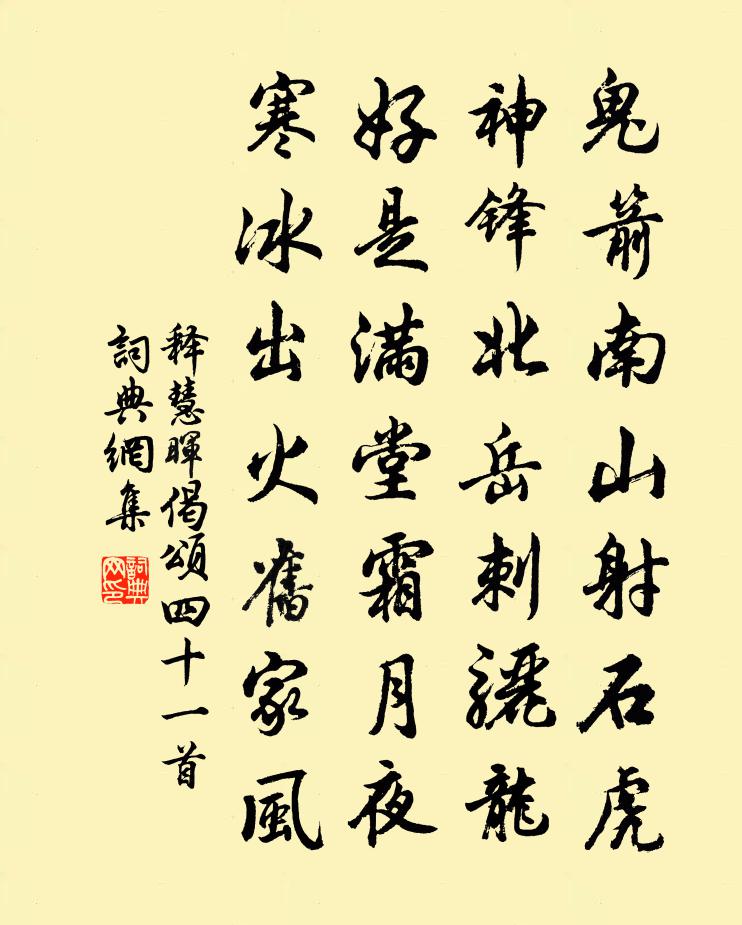 鬼箭南山射石虎
神锋北岳刺骊龍
好是满堂霜月夜
寒冰出火舊家風
释慧暉偈頌四十一首
詞典網集
詞典网印